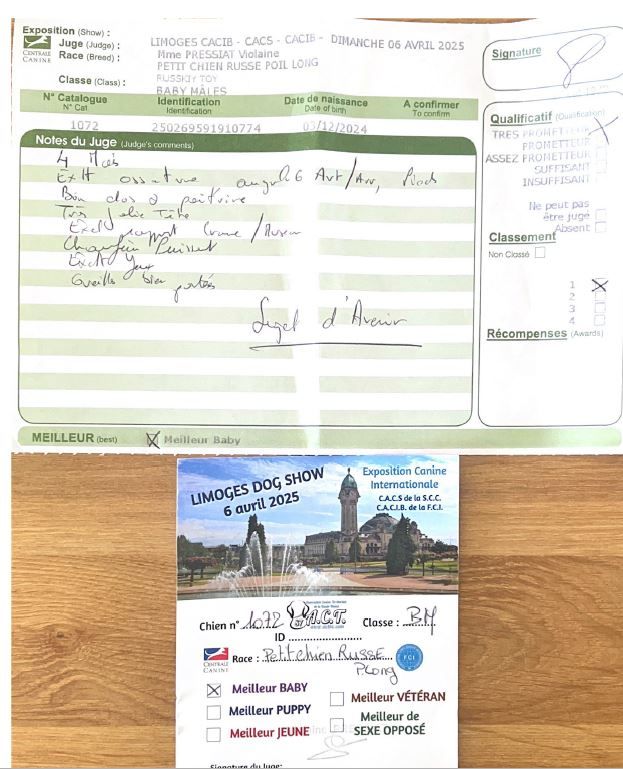 Exposition (Show) :
LIMOGES CACIB - CACS - CACIB - DIMANCHE 06 AVRIL 2025
CENTRALE
CANINE
Juge (Judge) :
Mme PRESSIAT Violaine
Race (Breed) :
PETIT CHIEN RUSSE POIL LONG
RUSSKIY TOY
Classe (Class) :
BABY MÂLES
Signature
N° Catalogue
N° Cat
Identification
Identification
Date de naissance
Date of birth
A confirmer
To confirm
1072
250269591910774
03/12/2024
Notes du Juge (Judge's comments)
4 Mois
Exlt ossature angul6 Avt/Arr, Pieds
Bon dos & poitrine
Très Jolie Tête
Exclt rapport Crane/
Chanfrein Puissant
Exclt Yeux
Oreilles bien portées
Sujet d'Avenir
Qualificatif (Qualification)
TRES PROMETTEUR
PROMETTEUR
ASSEZ PROMETTEUR
SUFFISANT
INSUFFISANT
Ne peut pas
être jugé
Absent
Classement
Non Classé
1
2
3
4
Récompenses (Awards)
MEILLEUR (best)
Meilleur Baby
LIMOGES DOG SHOW
6 avril 2025
Exposition Canine
Internationale
C.A.C.S de la S.C.C.
C.A.C.I.B. de la F.C.I.
Chien n° 1072
A.C.T.
Classe : BM
ID
CENTRALE
CANINE
Race : Petit Chien Russe
P.Long
FCI
Meilleur BABY
Meilleur PUPPY
Meilleur JEUNE
Meilleur VÉTÉRAN
Meilleur de
SEXE OPPOSÉ
Signature du Juge: